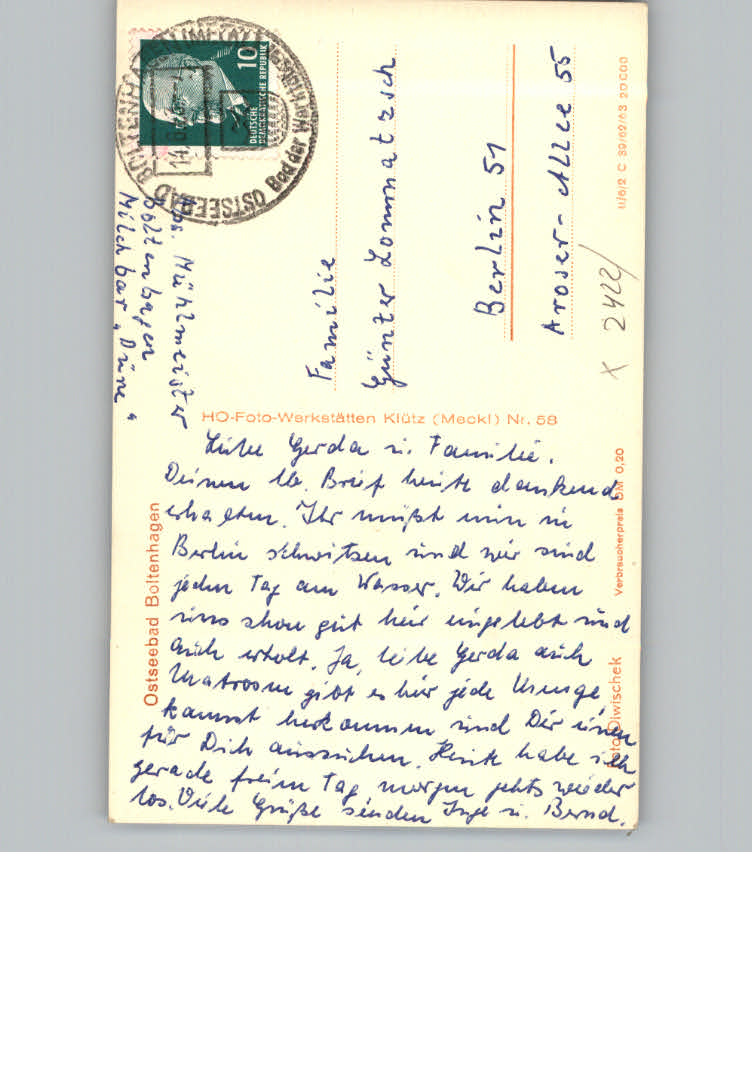 OSTSEEBAD BOLTENHAGEN
Bad der Werktätigen
10
DEUTSCHE
DEMOKRATISCHE REPUBLIK
Abs. Mühlmeister
Boltenhagen
Milchbar "Düne"
Familie
Günter Lommatzsch
Berlin 51
Aroser-Allee 55
II/6/2 C 39/62/63 20 000
X 2422/
HO-Foto-Werkstätten Klütz (Meckl) Nr. 58
Liebe Gerda u. Familie.
Deinen lb. Brief heute dankend
erhalten. Ihr müßt nun in
Berlin schwitzen und wir sind
jeden Tag am Wasser. Wir haben
uns schon gut hier eingelebt und
auch erholt. Ja, liebe Gerda auch
Matrosen gibt es hier jede Menge,
kannst herkommen und Dir einen
für Dich aussuchen. Heute habe ich
gerade freien Tag morgen gehts wieder
los. Viele Grüße senden Inge u. Bernd.
Ostseebad Boltenhagen
Verbraucherpreis DM 0,20
Foto Olwischek